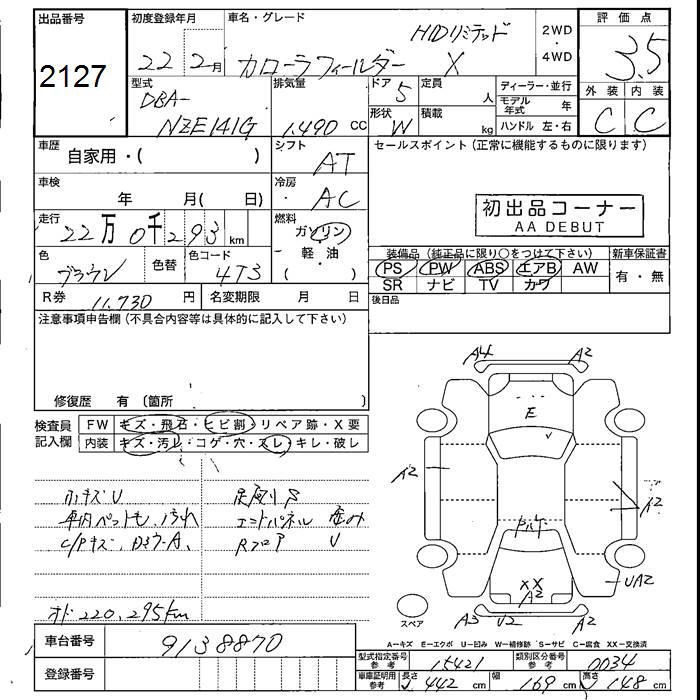 出品番号
2127
初度登録年月
22 2月
車名・グレード
HIDリミテッド
カローラフィールダー X
2WD
・
4WD
評価点
3.5
外装 内装
C C
型式
DBA-
NZE141G
排気量
1,490 cc
ドア 5
形状 W
定員 人
積載 kg
ディーラー・並行
モデル年式 年
ハンドル 左・右
車歴
自家用・( )
シフト
AT
車検
年 月( 日)
冷房
AC
走行
22万0千293km
燃料
ガソリン
・
軽・油
( )
色
ブラウン
色替
色コード
4T3
R券 11,730 円
名変期限 月 日
セールスポイント(正常に機能するものに限ります)
初出品コーナー
AA DEBUT
装備品(純正品に限り○をつけて下さい)
PS PW ABS エアB AW
SR ナビ TV カワ
新車保証書
有・無
後日品
注意事項申告欄(不具合内容等は具体的に記入して下さい)
修復歴 有(箇所 )
検査員記入欄
FW キズ・飛石・ヒビ割・リペア跡・X要
内装 キズ・汚レ・コゲ・穴・スレ・キレ・破レ
小キズU
C/Pキズ、
エンドパネル
Rフロア U
オド220,295km
A4 A2
E
A2
A2
XX
A2
UA2
A3 U2 A2
スペア
A-キズ E-エクボ U-凹み W-補修跡 S-サビ C-腐食 XX-交換済
車台番号
9138870
登録番号
型式指定番号 参考
15421
類別区分番号 参考
0034
車庫証明用 参考
長さ 442 cm
幅 169 cm
高さ 148 cm